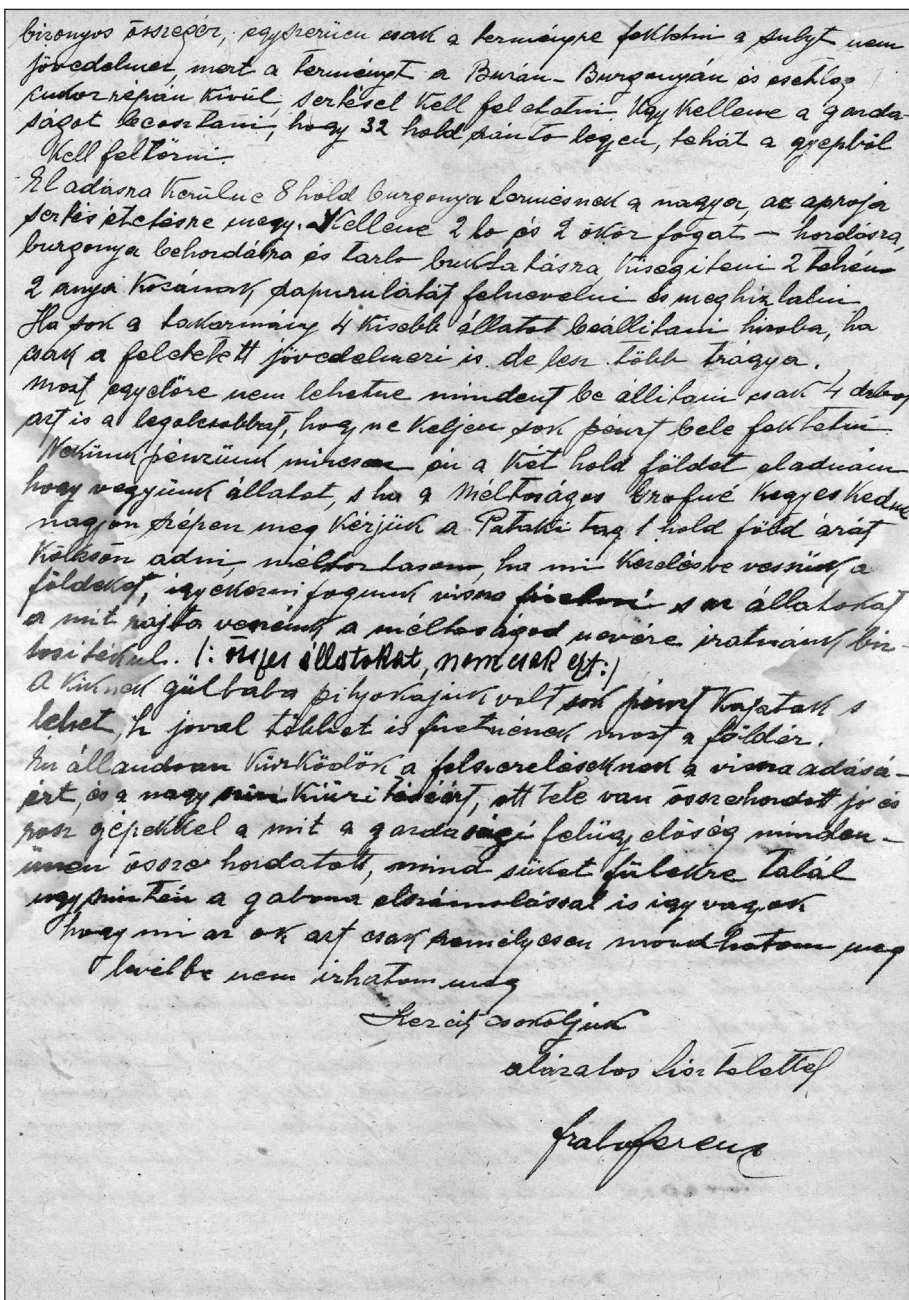 bizonyos összegér, egyszerüen csak a terményre fektetni a sulyt nem
jövedelmez, mert a terményt a Buzán – Burgonyán és esetleg
cukor répán kívül, sertésel kell feletetni. Ugy kellene a gazda-
ságot beosztani, hogy 32 hold szánto legyen, tehát a gyepböl
kell feltörni.
El adásra kerülne 8 hold burgonya termésnek a nagyja, az aproja
sertés etetésre megy. Kellene 2 lo és 2 ökör fogat – hordásra,
burgonya behordásra és tarlo buktatásra kisegiteni 2 tehén
2 anya kocának szapurulatát felnevelni és meghizlalni
Ha sok a takarmány 4 kisebb állatot beállitani hizoba, ha
csak a feletetett jövedelmezi is de lesz több trágya.
Most egyelöre nem lehetne mindent be állitani csak 4 darabot
azt is a legolcsobbat, hogy ne keljen sok pénzt bele fektetni
Nekünk pénzünk nincsen én a két hold földet eladnám
hogy vegyünk állatot, s ha a Méltoságos Grofné kegyeskedne
nagyon szépen meg kérjük a Pataki tag 1 hold föld árát
kölcsön adni méltoztasson, ha mi kezelésbe vesszük a
földeket, igyekezni fogunk vissza fizetni s az állatokat
a mit rajta vennénk a méltoságod nevére iratnánk biz-
tositékul. /: összes állatokat, nem csak ezt:/
A kiknek gülbaba pityokájuk volt sok pénzt kaptak s
lehet, h joval többet is fizetnének most a földér.
Én állandoan küzködök a felszereléseknek a vissza adásá-
ért, és a nagy szin kiüritéséért, ott tele van összehordott jó és
rosz gépekkel a mit a gazdasági felügyelöség minden-
ünen össze hordatott, mind süket fülekre talál
ugyszintén a gabona elszámolással is igy vagyok
hogy mi az ok azt csak személyesen mondhatom meg
levélbe nem irhatom meg
Kezeit csokoljuk
alázatos tisztelettel
Ferenc